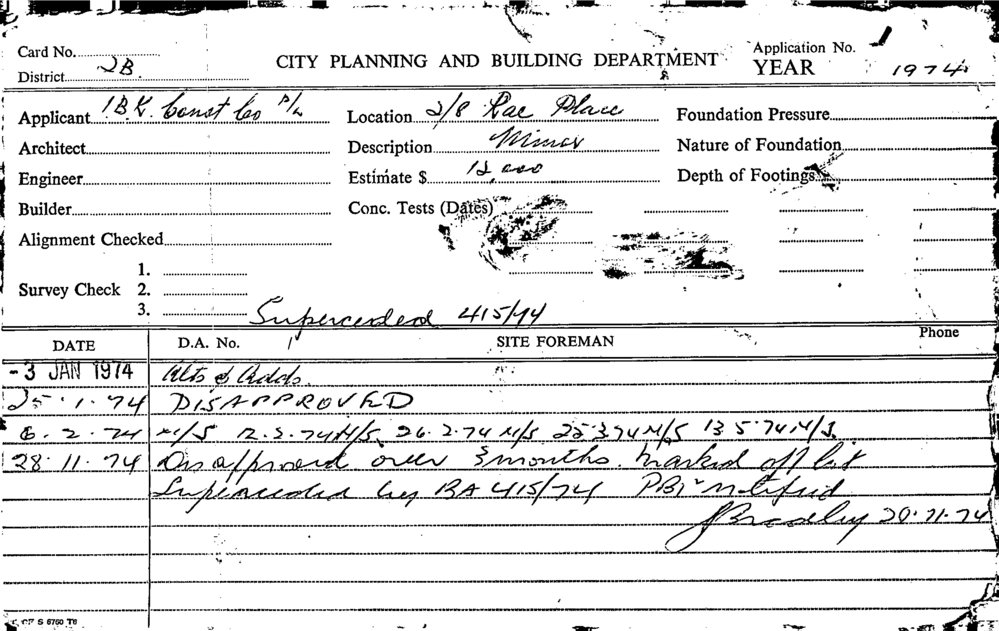 Card No.
District 2B.
CITY PLANNING AND BUILDING DEPARTMENT
Application No. 1
YEAR 1974
Applicant I.B.K. Const Co P/L
Location 2/8 Rae Place
Foundation Pressure
Architect
Description Minor
Nature of Foundation
Engineer
Estimate $ 12,000
Depth of Footings
Builder
Conc. Tests (Dates)
Alignment Checked
1.
Survey Check 2.
3.
Superceded 415/74
DATE D.A. No. SITE FOREMAN Phone
- 3 JAN 1974 Alts & Adds.
25.1.74 DISAPPROVED
6.2.74 N/S 12.3.74 N/S. 26.2.74 N/S 25.3.74 N/S 13.5.74 N/S.
28.11.74 Disapproved over 3 months. Marked off list
Superceded by BA 415/74 notified
JBradley 20.11.74
S 6760